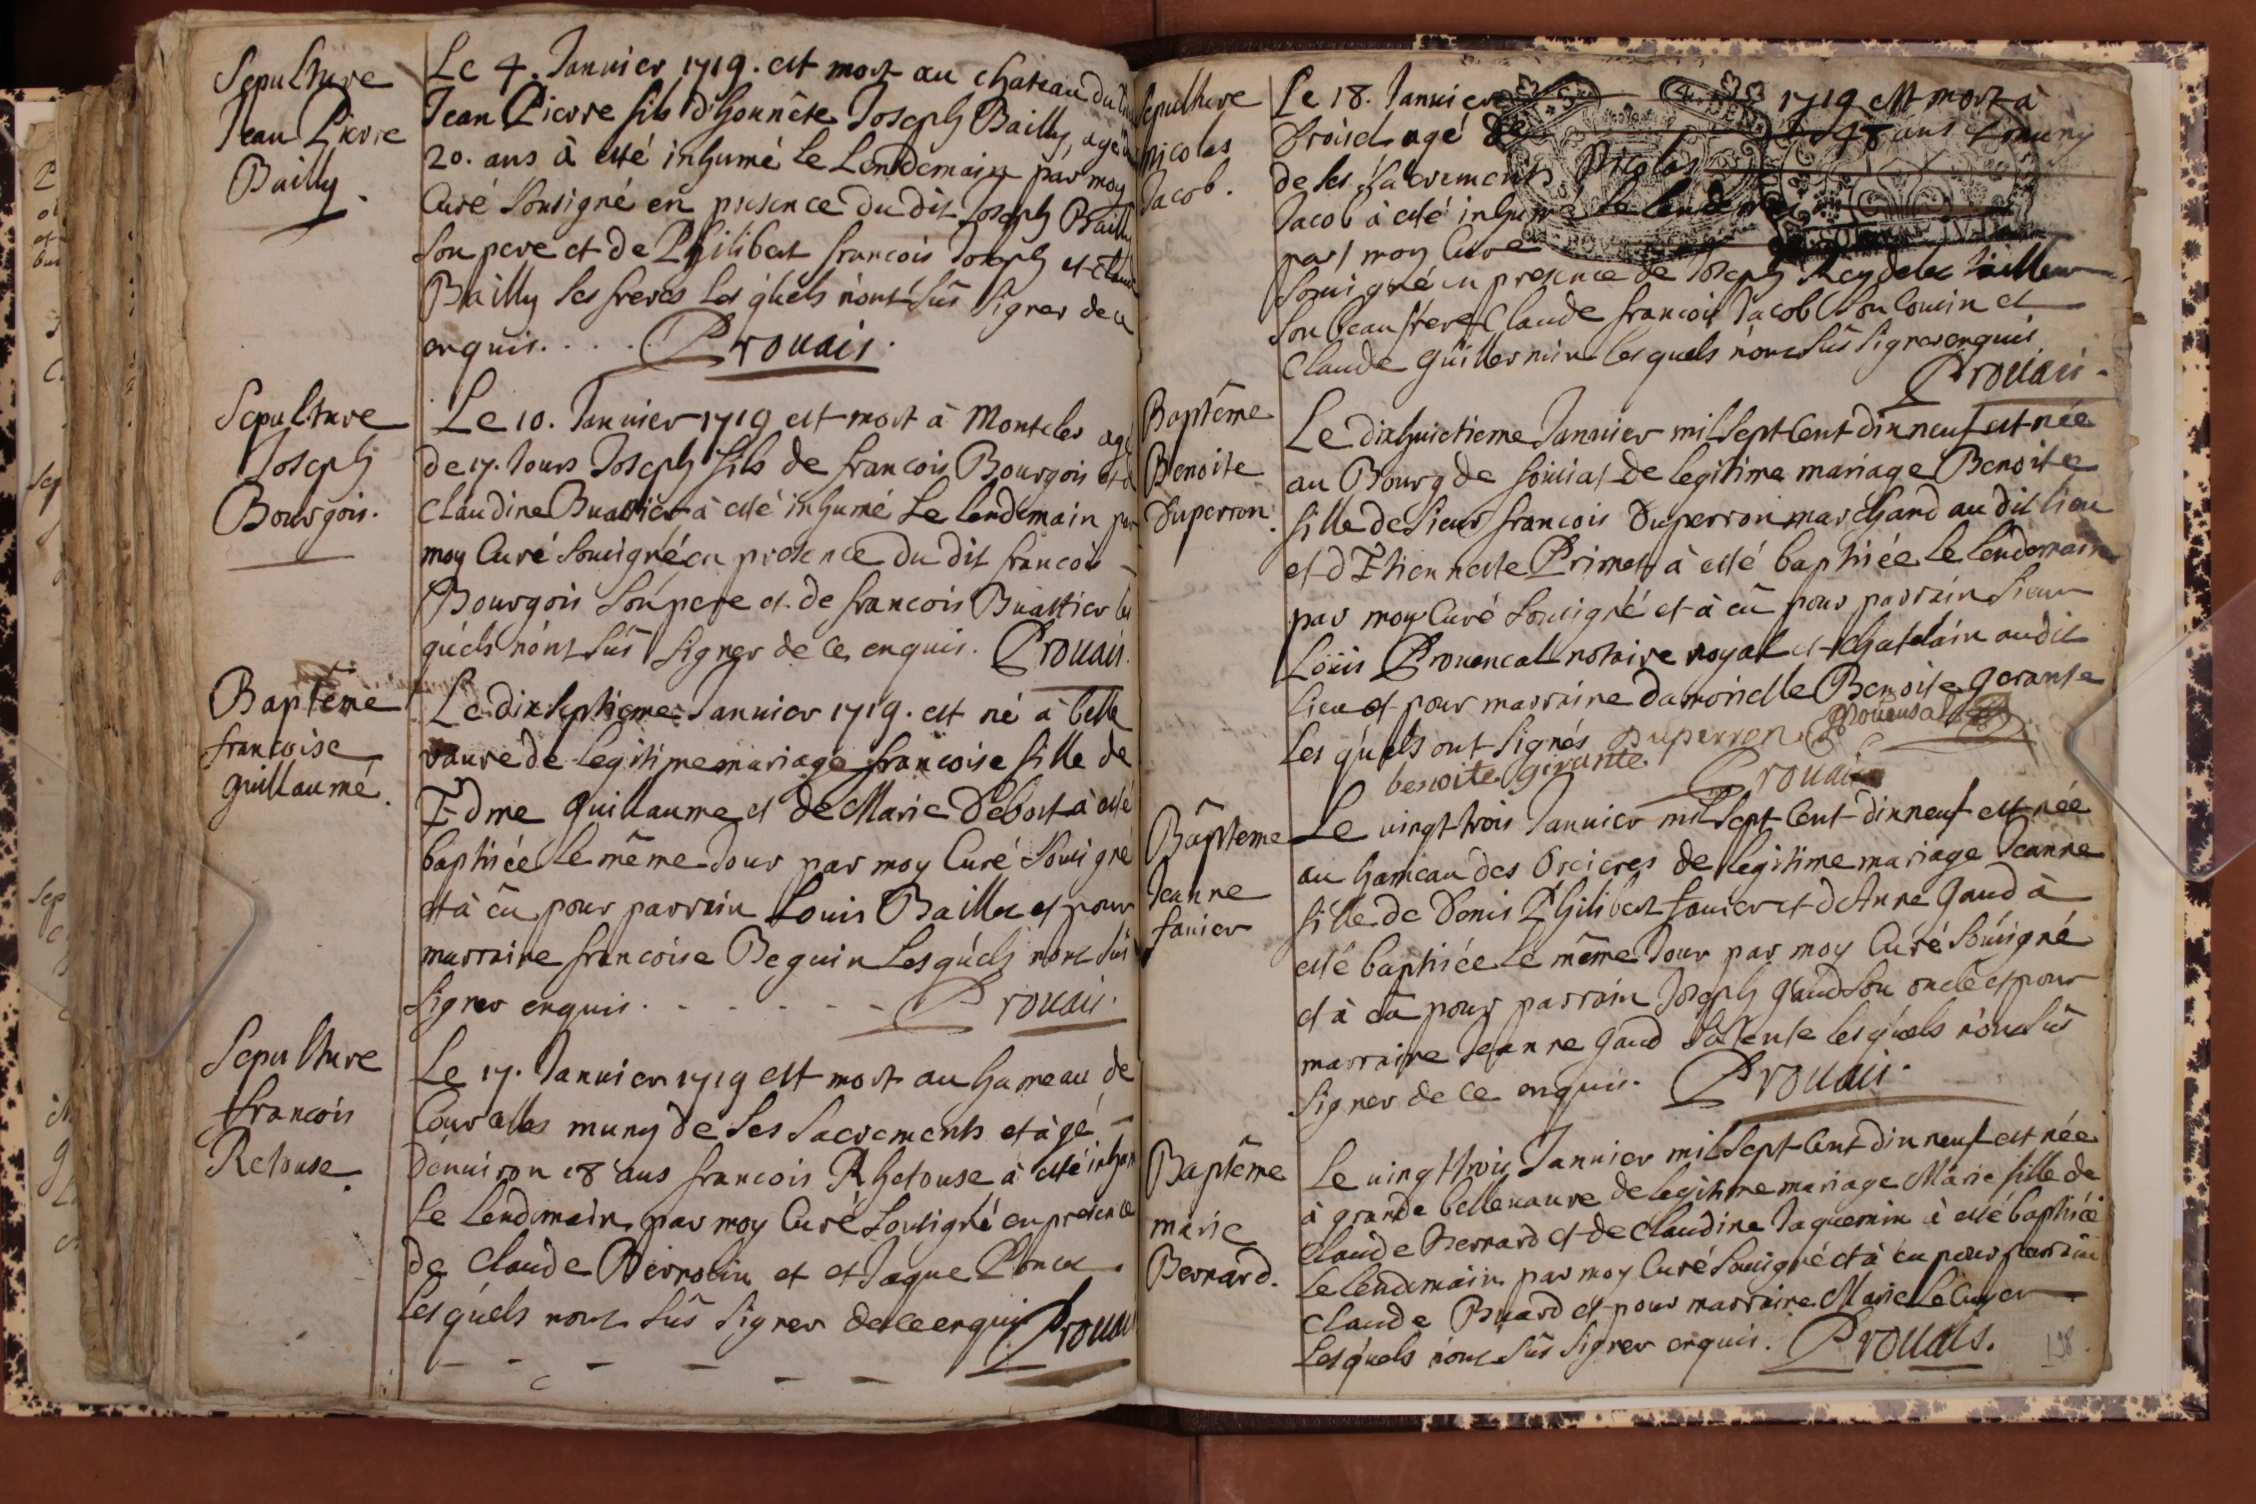 Sepulture
Jean Pierre
Bailly.
Le 4. Janvier 1719. est mort au chateau du
Jean Pierre fils d'honnête Joseph Bailly, agé
20. ans à esté inhumé le Lendemain par moy
Curé Sousigné en presence du dit Joseph Bailly
son pere et de Philibert francois Joseph et Claude
Bailly ses freres les quels n'ont sûs signer de ce
enquis. . . . . Prouais.
Sepulture
Joseph
Bourgois.
Le 10. Janvier 1719 est mort à Monteler agé
de 17. Jours Joseph fils de francois Bourgois et de
Claudine Buattier à esté inhumé Le lendemain par
moy Curé Sousigné en presence du dit francois
Bourgois son pere et de francois Buattier les
quels n'ont sûs signer de ce enquis. Prouais.
Baptême
francoise
guillaumé.
Le dixseptieme Janvier 1719. est né à belle
vaure de legitime mariage francoise fille de
Edme guillaume et de Marie Debost à esté
baptisée le même Jour par moy Curé Sousigné
et à eu pour parrain Louis Baillet et pour
marraine francoise Beguin Les quels n'ont sûs
signer enquis. - - - - - Prouais.
Sepulture
francois
Retouse.
Le 17. Janvier 1719 est mort au hameau de
Courelles muny de ses sacrements et agé
d'environ 18 ans francois Rhetouse à esté inhumé
le lendemain par moy Curé Sousigné en presence
de Claude et et Jaque Poncet.
Les quels n'ont sûs signer de ce enquis Prouais
Sepulture
Nicolas
Jacob.
Le 18. Janvier 1719 est mort à
froidel agé de 48 ans muny
de ses sacrements Nicolas
Jacob à esté inhumé le lendemain
par moy Curé
Sousigné en presence de Joseph Reydelet tailleur
son beau frere Claude francois Jacob son cousin et
Claude guillermin lesquels n'ont sûs signer enquis
Prouais.
Baptême
Benoite
Duperron.
Le dixhuictieme Janvier mil sept cent dixneuf est née
au Bourg de de legitime mariage Benoite
fille de Sieur francois Duperron marchand au dit lieu
et d'Etiennette Primet à esté baptisée le lendemain
par moy Curé Sousigné et à eû pour parrain Sieur
Loüis Prouencal notaire royal et chatelain au dit
lieu et pour marraine damoiselle Benoite gerante
Les quels ont signés Duperron Prouensal
benoite gerante Prouais
Bâpteme
Jeanne
fanier
Le vingt trois Janvier mil sept cent dixneuf est née
au hameau des Orcieres de legitime mariage Jeanne
fille de Denis Philibert fanier et d'Anne Gaud à
esté baptisée le même Jour par moy Curé Sousigné
et à eû pour parrain Joseph gaud son oncle et pour
marraine Jeanne Gaud sa tente lesquels n'ont sûs
signer de ce enquis. Prouais.
Baptême
marie
Bernard.
Le vingt trois Janvier mil sept cent dixneuf est née
à grande bellevaure de legitime mariage Marie fille de
Claude Bernard et de Claudine Jaquemin à esté baptisée
Le lendemain par moy Curé Sousigné et à eu pour parrain
Claude Buard et pour marraine Marie Lecuyer
Lesquels n'ont sûs signer enquis. Prouais.
138